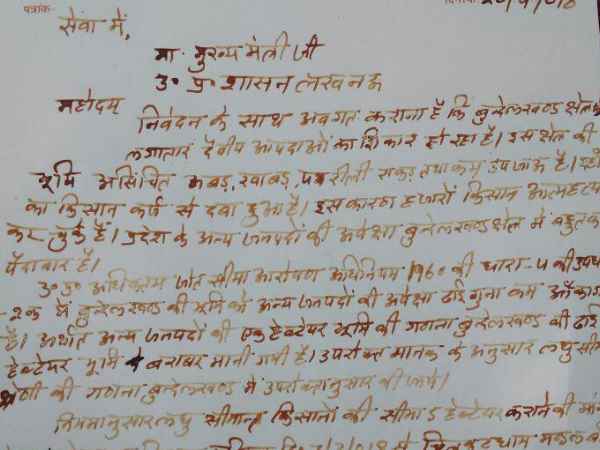 पत्रांक
दिनांक
सेवा में,
मा. मुख्य मंत्री जी
उ० प्र० शासन लखनऊ
महोदय
निवेदन के साथ अवगत कराना है कि बुन्देलखण्ड क्षेत्र
लगातार दैवीय आपदाओं का शिकार हो रहा है। इस क्षेत्र की
भूमि असिंचित ऊबड़, खाबड़, पथरीली राकड़ तथा कम उपजाऊ है।
का किसान कर्ज से दबा हुआ है। इस कारण हजारों किसान आत्महत्या
कर चुके हैं। प्रदेश के अन्य जनपदों की अपेक्षा बुन्देलखण्ड क्षेत्र में बहुत कम
पैदावार है।
उ०प्र० अधिकतम जोत सीमा आरोपण अधिनियम 1960 की धारा-५ की उपधारा
-2क में बुन्देलखण्ड की भूमि को अन्य जनपदों की अपेक्षा ढाई गुना कम आँका गया
है। अर्थात अन्य जनपदों की एक हेक्टेयर भूमि की गणना बुन्देलखण्ड की ढाई
हेक्टेयर भूमि के बराबर मानी गयी है। उपरोक्त मानक के अनुसार लघु सीमान्त
श्रेणी की गणना बुन्देलखण्ड में उपरोक्तानुसार की जाये।
नियमानुसार लघु सीमान्त किसानों की सीमा 5 हेक्टेयर कराने की मांग
चित्रकूटधाम मण्डल